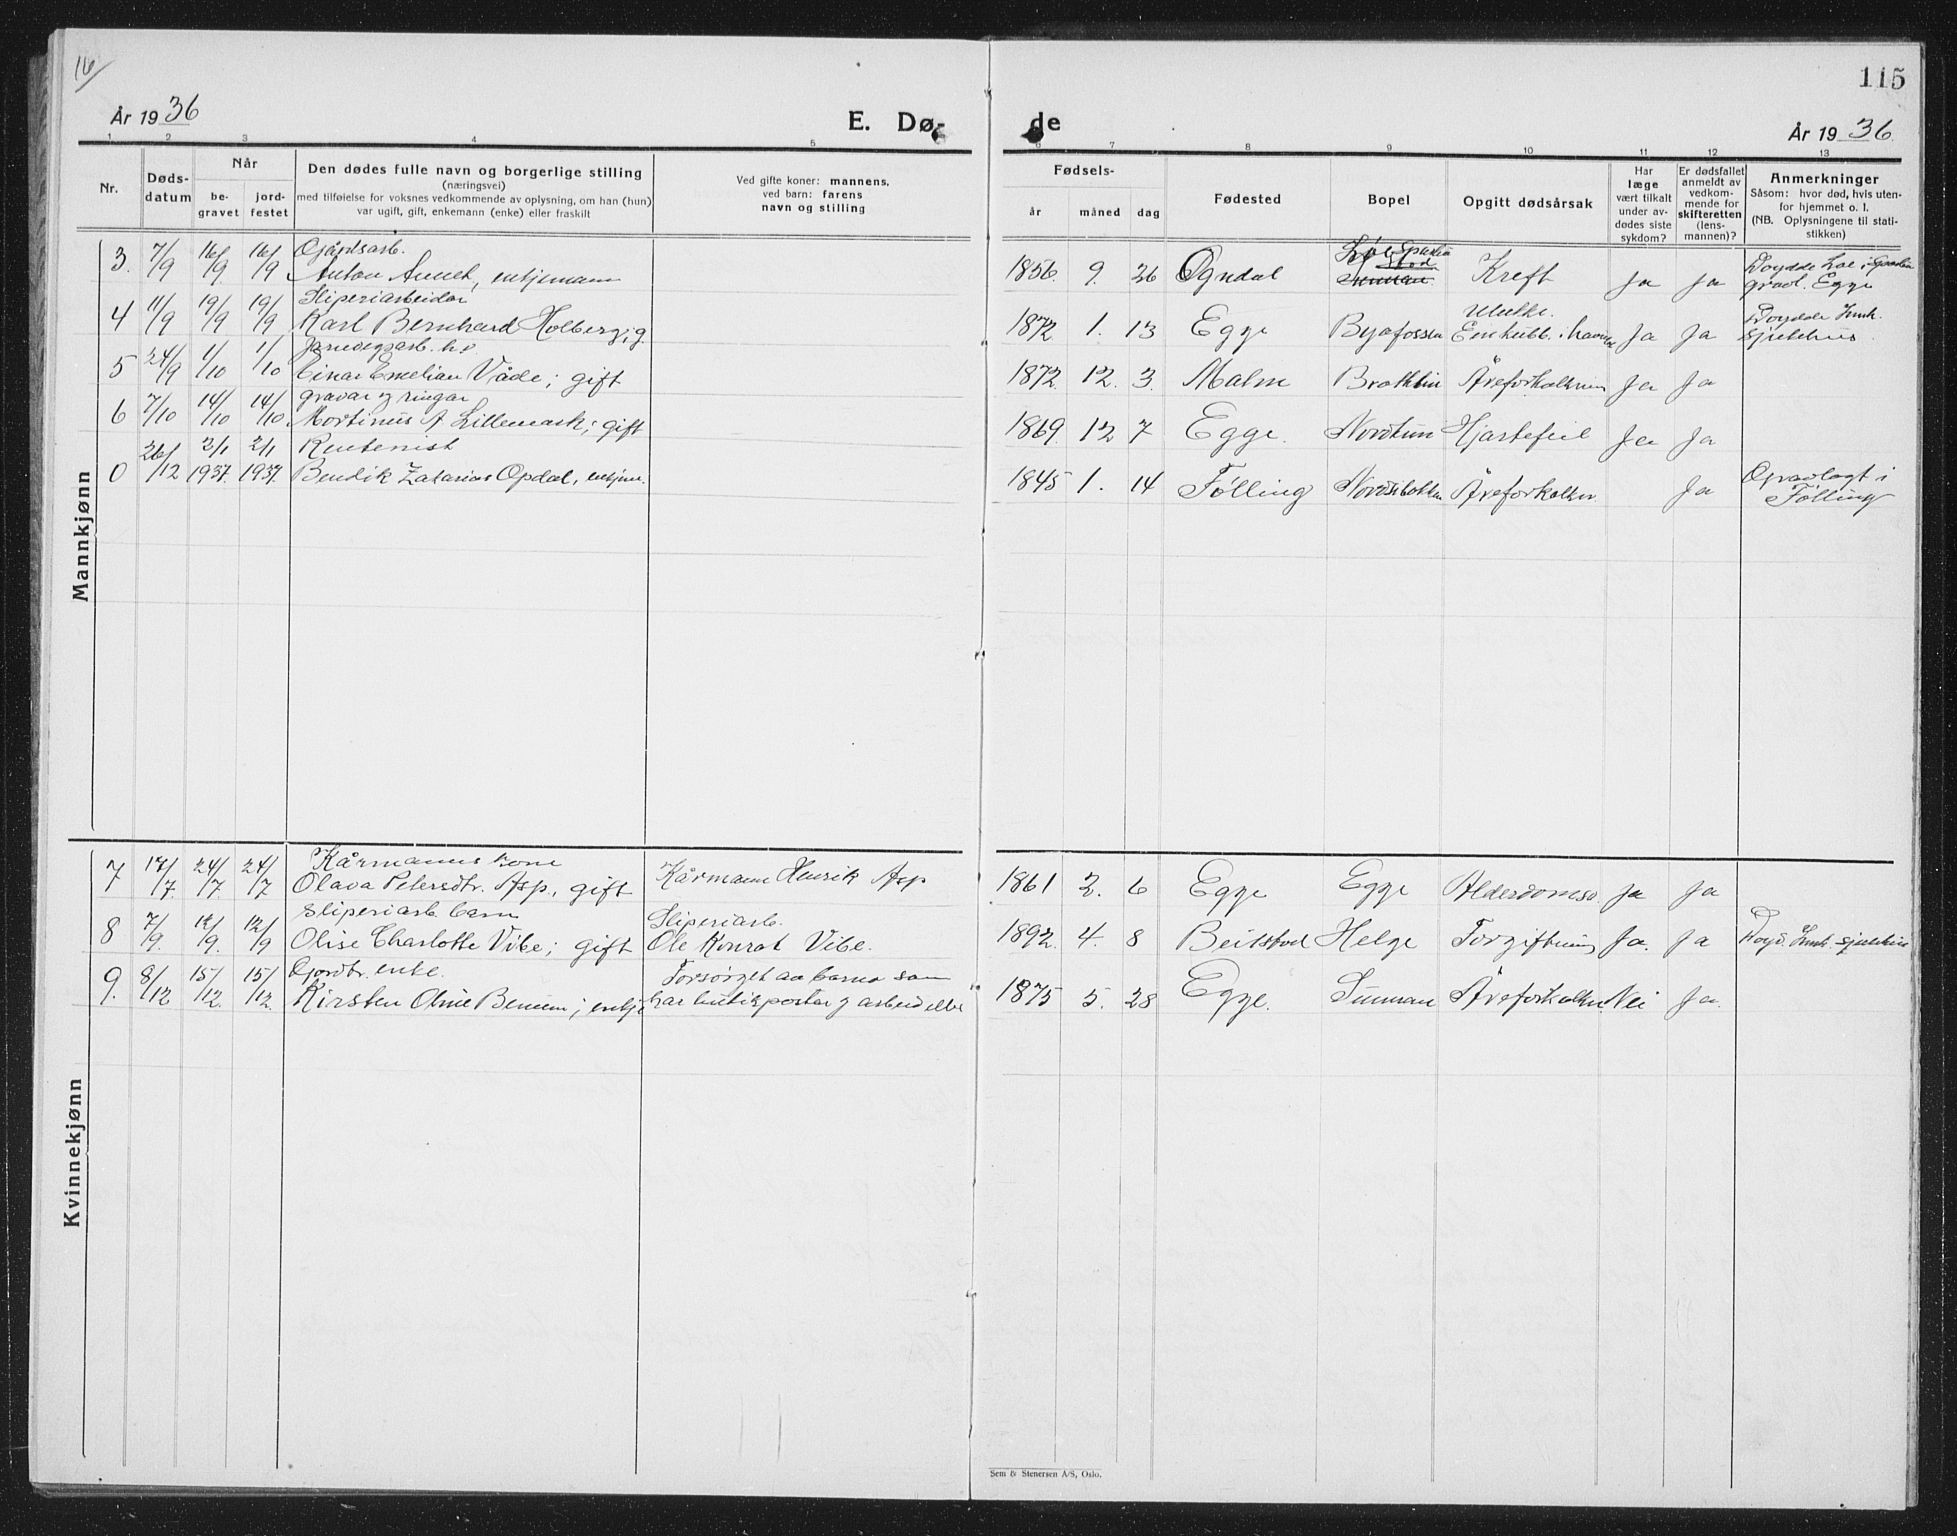 16
115
År 1936
E. Dø-
de
År 1936
1 2 3 4 5
6 7 8 9 10 11 12 13
Nr.
Døds-
datum
Når
be-
gravet
jord-
festet
Den dødes fulle navn og borgerlige stilling
(næringsvei)
med tilføielse for voksnes vedkommende av oplysning, om han (hun)
var ugift, gift, enkemann (enke) eller fraskilt
Ved gifte koner: mannens,
ved barn: farens
navn og stilling
Fødsels-
år måned dag
Fødested
Bopel
Opgitt dødsårsak
Har
læge
vært tilkalt
under av-
dødes siste
sykdom?
Er dødsfallet
anmeldt av
vedkom-
mende for
skifteretten
(lens-
mannen)?
Anmerkninger
Såsom: hvor død, hvis uten-
for hjemmet o. l.
(NB. Oplysningene til stati-
stikken)
Mannkjønn
Gårdsarb.
3. 7/9 16/9 16/9 Anton , enkjemann 1856. 9. 26 Ogndal Kreft Ja Ja
Sliperiarbeidar
4 11/9 19/9 19/9 Karl Bernhard Holberg; g. 1872 1. 13 Egge Byafossen Ja Ja
5 24/9 1/10 1/10 Einar Emelian Våde; gift 1872. 12. 3. Malm Åreforkalkning Ja Ja
gravar og ringar
6 7/10 14/10 14/10 Mortinus A Lillemark; gift 1869 12 7 Egge. Nordtun Hjartefeil Ja Ja
Rentenist
0 26/12 2/1 1937. 2/1 1937. Bendik Zakarias Opdal, enkjem. 1845 1. 14 Følling Åreforkalkn. Ja Gravlagt i
Følling
Kvinnekjønn
Kårmanns kone
7 17/7. 24/7. 24/7 Olava Petersdtr. Asp, gift Kårmann Henrik Asp 1861 2. 6 Egge Egge Alderdomsv. Ja Ja
Sliperiarb. Sliperiarb.
8 7/9. 12/9. 12/9 Olise Charlotte Vibe; gift Ole Konrat Vibe. 1892. 4. 8 Beitstad Helge Forgiftning Ja. Ja
Gordbr. enke. Forsørget av barna som
9. 8/12 15/12 15/12. Kirsten Oline ; enkje har 1875 5. 28 Egge. Sunnan Åreforkalkn. Nei Ja.
Sem & Stenersen A/S, Oslo.